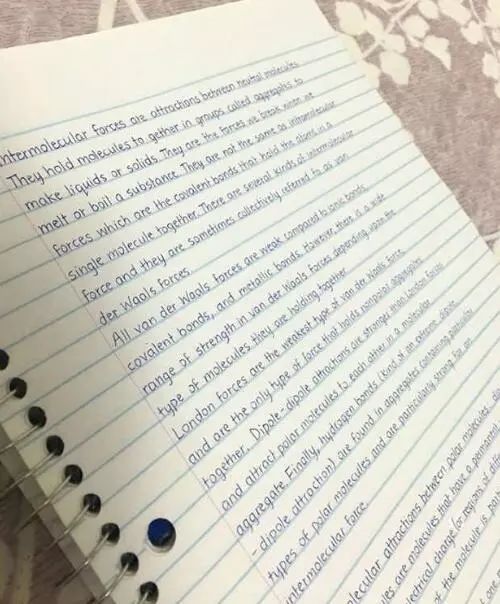 Intermolecular forces are attractions between neutral molecules.
They hold molecules to gether in groups called aggregates to
make liquids or solids. They are the forces we break when we
melt or boil a substance. They are not the same as intramolecular
forces which are the covalent bonds that hold the atoms in a
single molecule together. There are several kinds of intermolecular
force and they are sometimes collectively referred to as van
der Waals forces.
All van der Waals forces are weak compared to ionic bonds,
covalent bonds, and metallic bonds. However, there is a wide
range of strength in van der Waals forces depending upon the
type of molecules they are holding together.
London forces are the weakest type of van der Waals force
and are the only type of force that holds nonpolar aggregates
together. Dipole-dipole attractions are stronger than London forces
and attract polar molecules to each other in a molecular
aggregate. Finally, hydrogen bonds (kind of an extreme dipole
-dipole attraction) are found in aggregates containing particular
types of polar molecules and are particularly strong for an
intermolecular force.
molecular attractions between polar molecules
are molecules that have a permanent
electrical charge (or regions of
of the molecule is